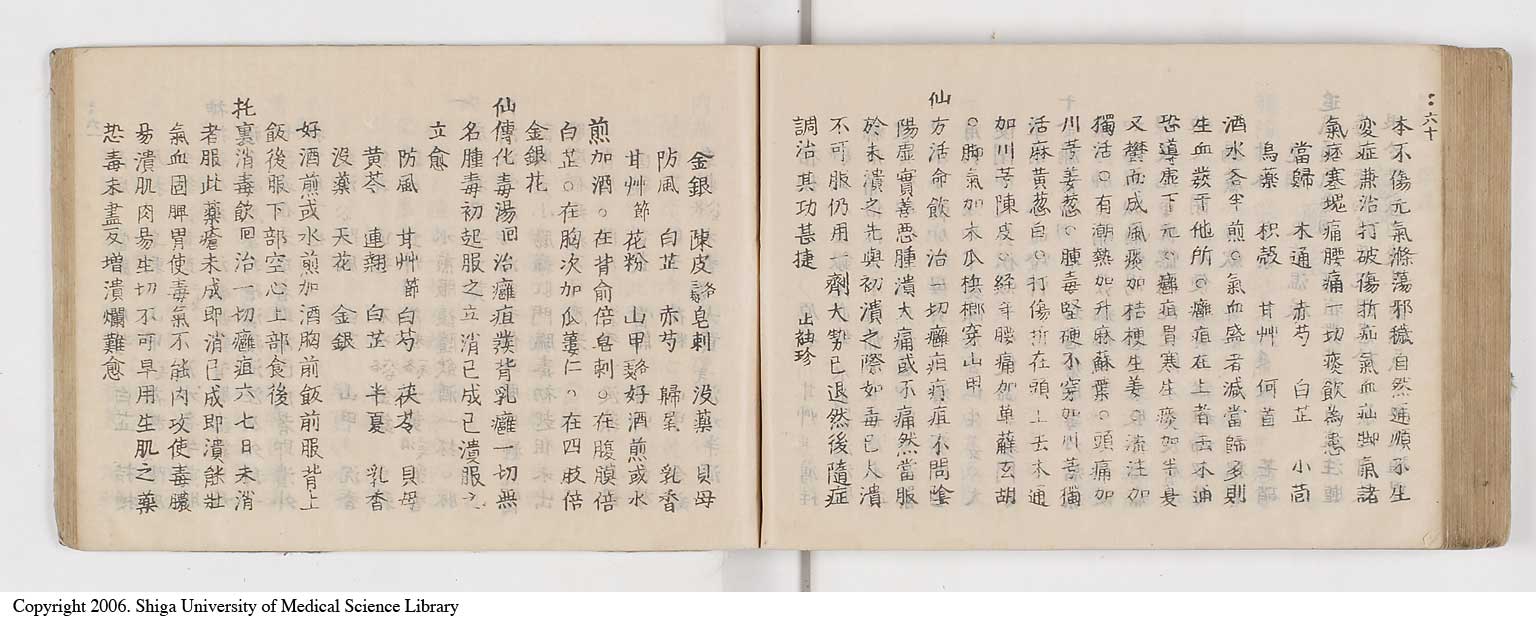 六十
本不傷元氣滌蕩邪穢自然通順不生
変症兼治打破傷折疝氣血疝脚氣諸
氣痞塞塊痛腰痛一切痰飲為患
當歸 木通 赤芍 白芷 小茴
烏藥 枳殻 甘艸 何首
酒水各半煎。氣血盛者減當歸多則
生血發于他所。癰疽在上者去木通
恐導虚下元。癰疽胃寒生痰加半夏
又欝而成風痰加桔梗生姜。流注加
獨活。有潮熱加升麻蘇葉。頭痛加
川芎姜葱。腫毒堅硬不穿加川芎獨
活麻黄葱白。打傷折在頭上去木通
加川芎陳皮。経年腰痛加萆薢玄胡
。脚氣加木瓜檳榔穿山甲
仙方活命飲 治一切癰疽疔疽不問陰
陽虚實善悪腫潰大痛或不痛然當服
於未潰之先與初潰之際如毒已大潰
不可服仍用一劑大勢已退然後隨症
調治其功甚捷 袖珍
金銀 陳皮 皂刺 没藥 貝母
防風 白芷 赤芍 歸尾 乳香
甘艸節 花粉 山甲 好酒煎或水
煎加酒。在背俞倍皂刺。在腹膜倍
白芷。在胸次加瓜蔞仁。在四肢倍
金銀花
仙傳化毒湯 回 治癰疽發背乳癰一切無
名腫毒初起服之立消已成已潰服之
立愈
防風 甘艸節 白芍 茯苓 貝母
黄芩 連翹 白芷 半夏 乳香
没藥 天花 金銀
好酒煎或水煎加酒胸前飯前服背上
飯後服下部空心上部食後
托裏消毒飲 回 治一切癰疽六七日未消
者服此藥瘡未成即消已成即潰能壯
氣血固脾胃使毒氣不能内攻使毒臓
昜潰肌肉昜生切不可早用生肌之藥
恐毒未盡反増潰爛難愈
Copyright 2006. Shiga University of Medical Science Library